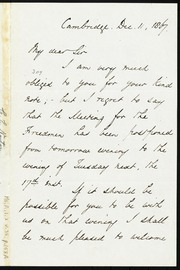 Cambridge, Dec. 11, 1867
My dear Sir
I am very much
obliged to you for your kind
note;– but I regret to say
that the Meeting for the
Freedmen has been postponed
from tomorrow evening to the
evening of Tuesday next, the
17th inst.
If it should be
possible for you to be with
us on that evening I shall
be much pleased to welcome